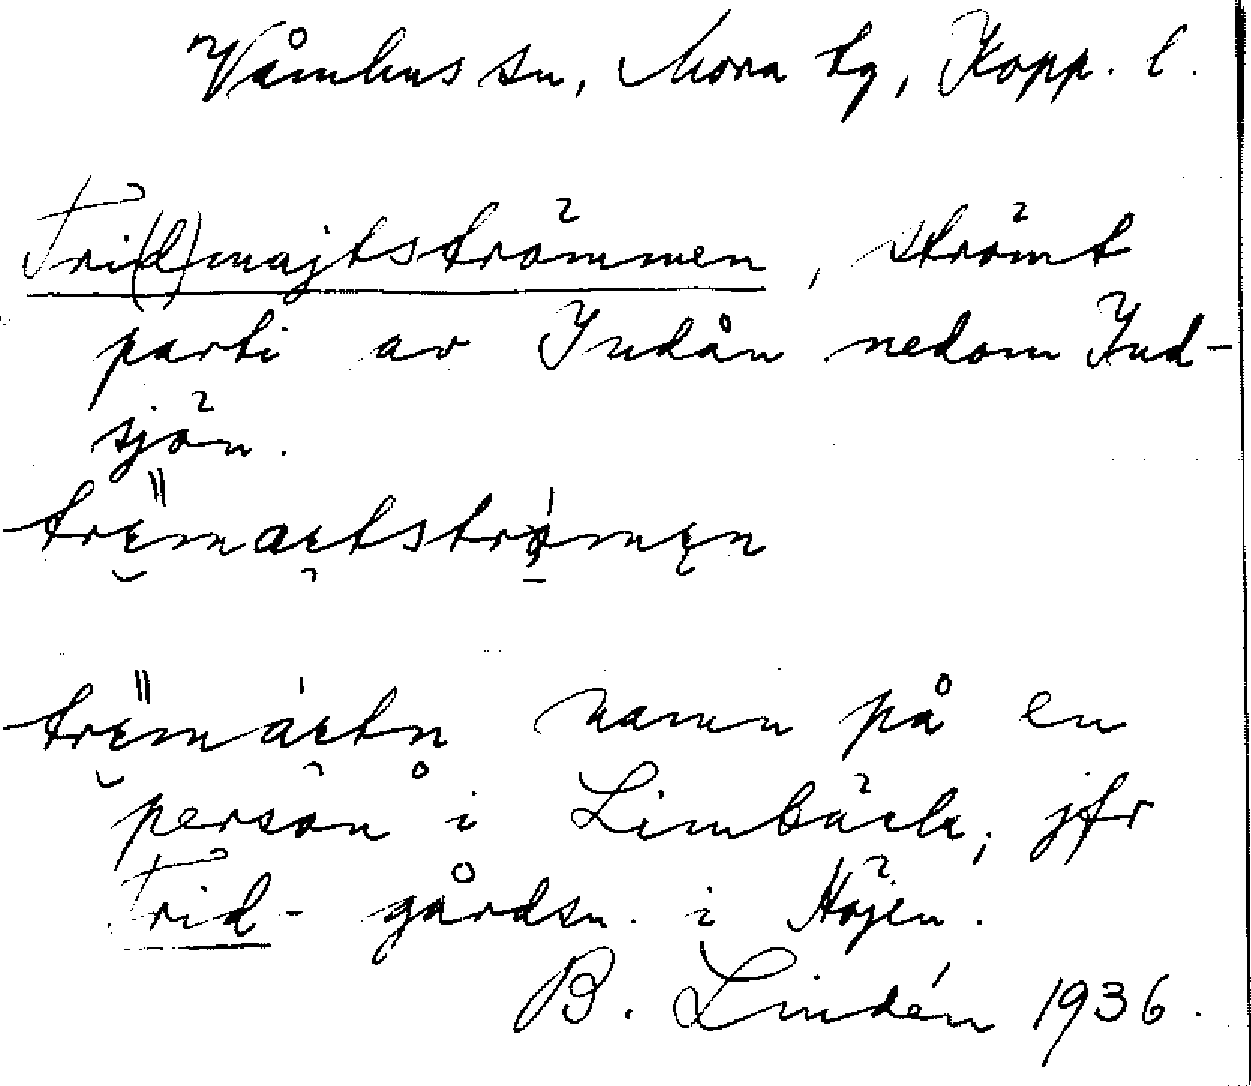 Våmhus sn, Mora tg, Kopp. l.
Tri(d)majtströmmen, strömt
parti av Indån nedom Ind-
sjön.
tremaetströmen
tremáetn namn på en
person i Limbäck; jfr
Trid- gårdsn. i Höjen.
B. Lindén 1936.